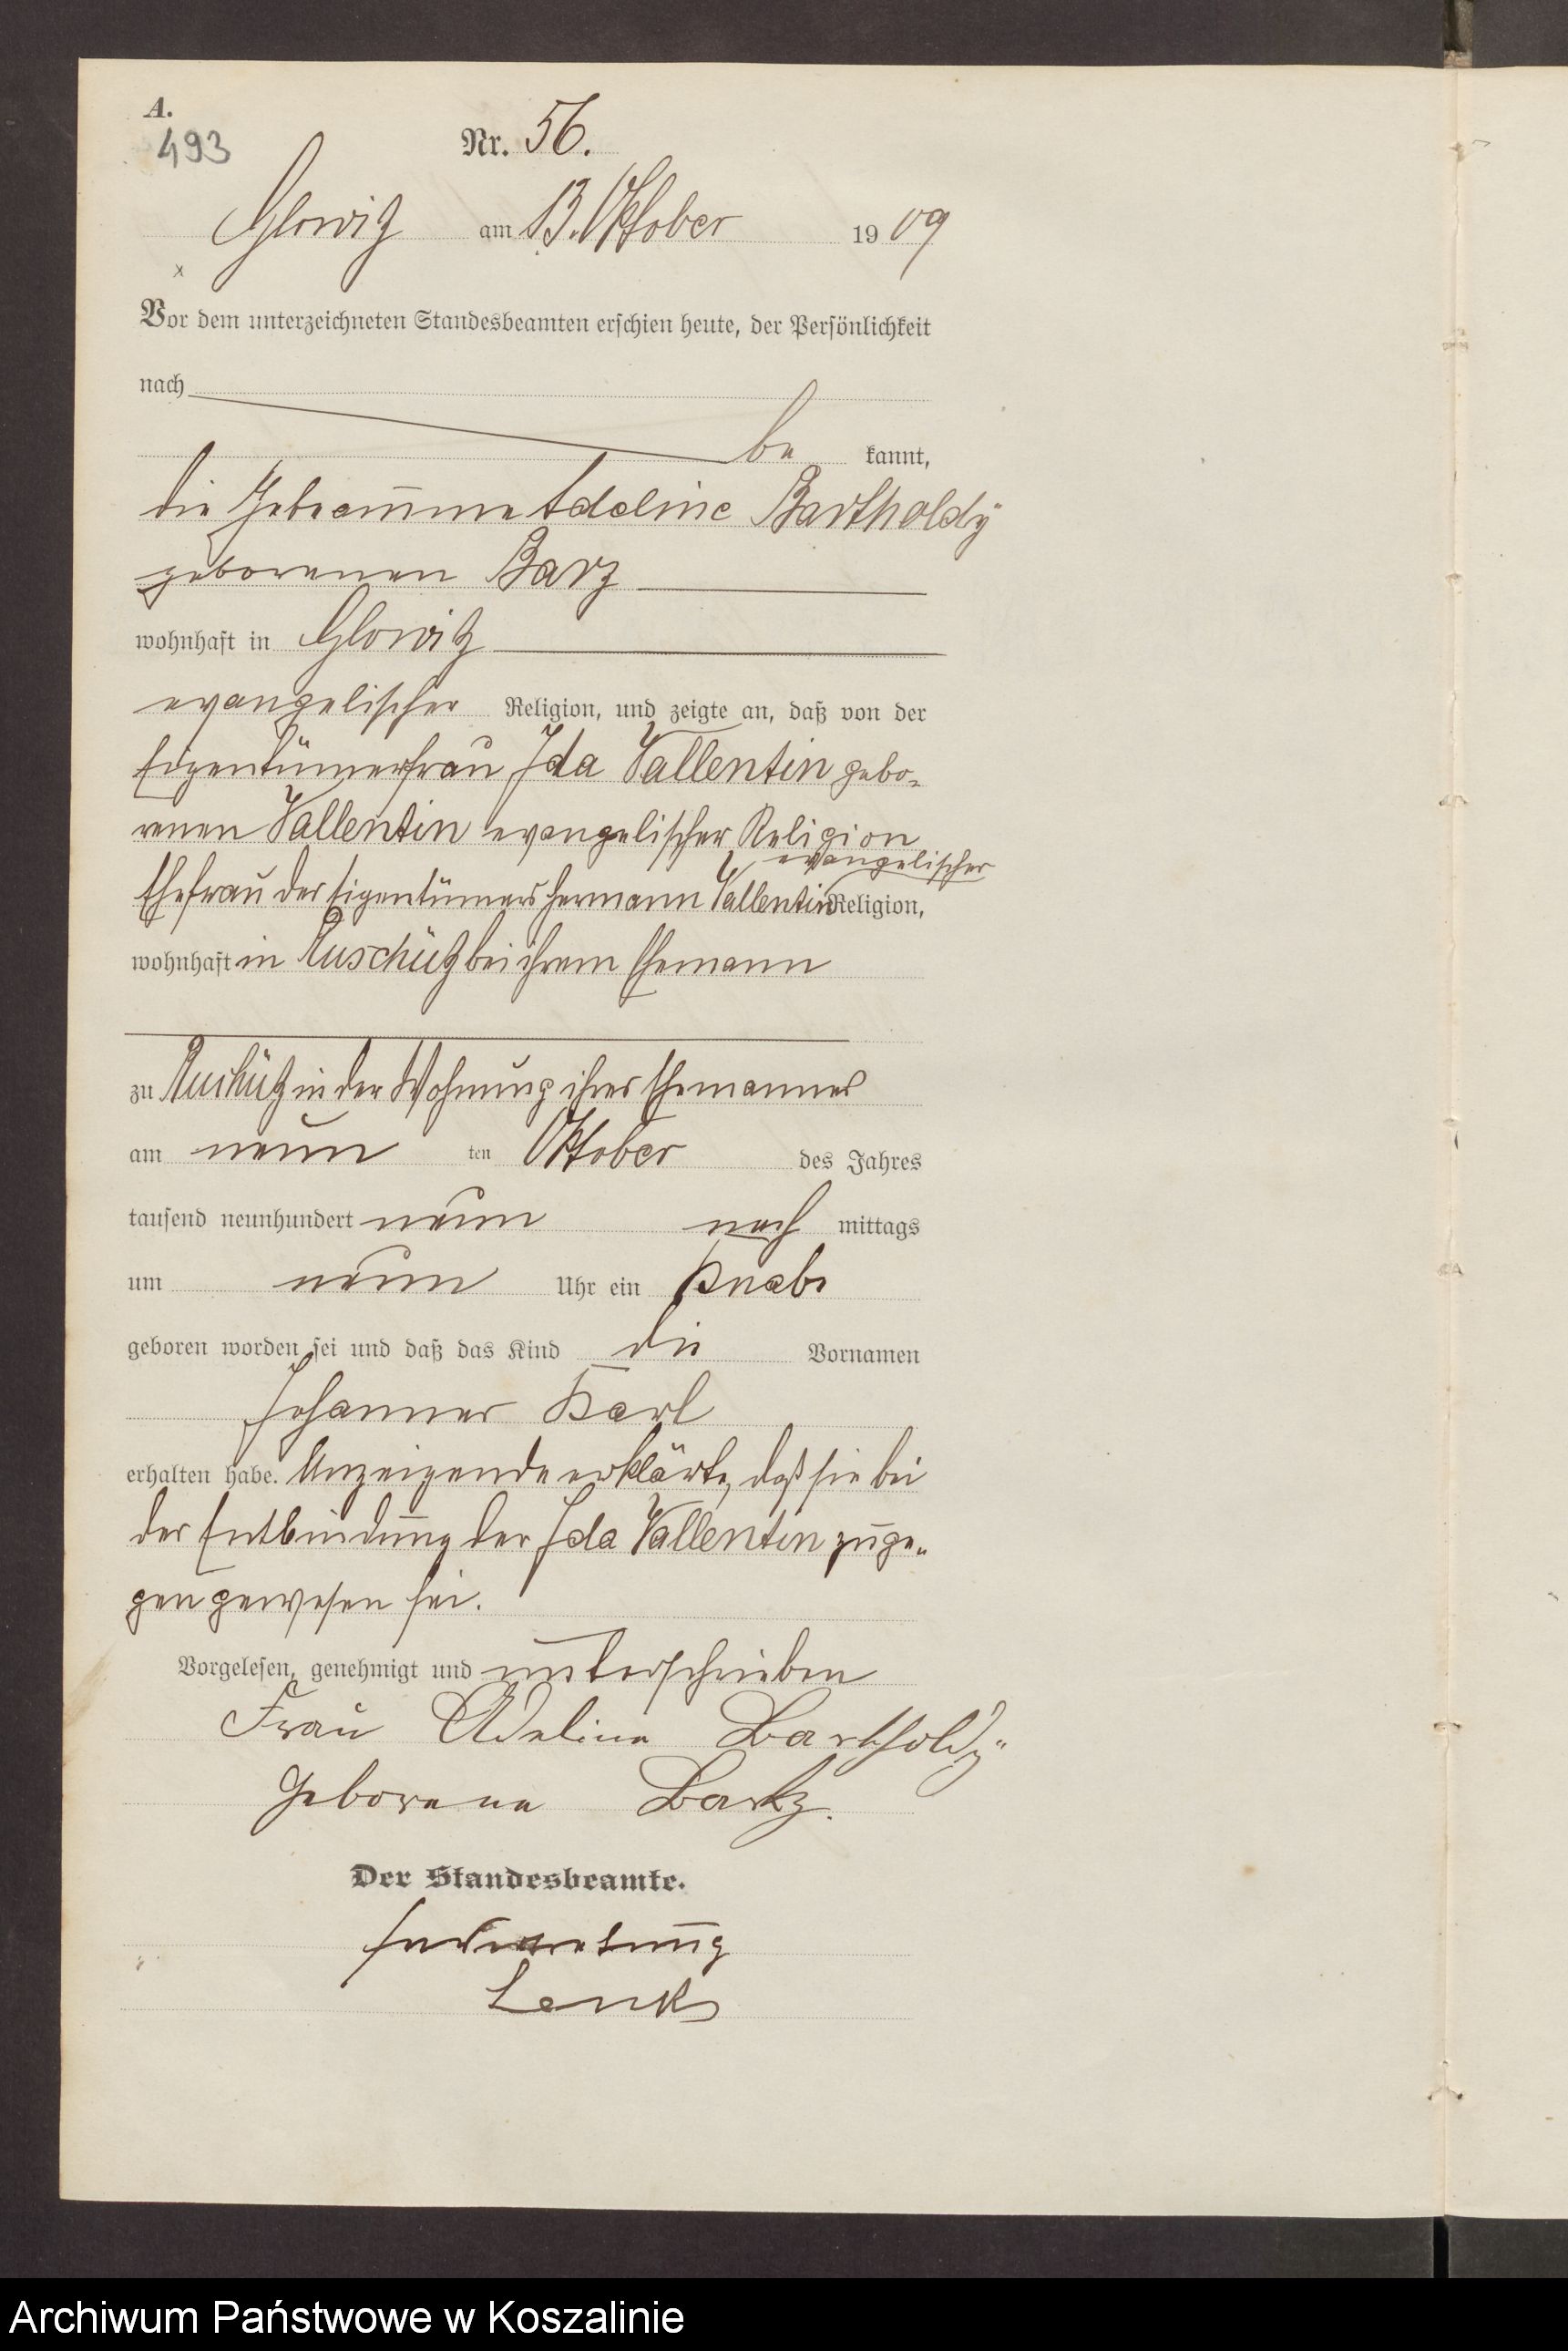 A.
493
Nr. 56.
Glowitz am 13. Oktober 1909
Vor dem unterzeichneten Standesbeamten erschien heute, der Persönlichkeit
nach
be kannt,
die Hebeamme Adeline Bartholdÿ
geborenen Barz
wohnhaft in Glowitz
evangelischer Religion, und zeigte an, daß von der
Eigentümerfrau Ida Vallentin gebo-
renen Vallentin evangelischer Religion
evangelischer
Ehefrau des Eigentümers Hermann Vallentin Religion,
wohnhaft in Ruschütz bei ihrem Ehemann
zu Ruschütz in der Wohnung ihres Ehemannes
am neun ten Oktober des Jahres
tausend neunhundert neun nach mittags
um neun Uhr ein Knabe
geboren worden sei und daß das Kind die Vornamen
Johannes Karl
erhalten habe. Anzeigende erklärte, daß sie bei
der Entbindung der Ida Vallentin zuge-
gen gewesen sei.
Vorgelesen, genehmigt und unterschrieben
Frau Adeline Bartholdÿ
Geborene Bartz.
Der Standesbeamte.
In Vertretung
Lenk
Archiwum Państwowe w Koszalinie